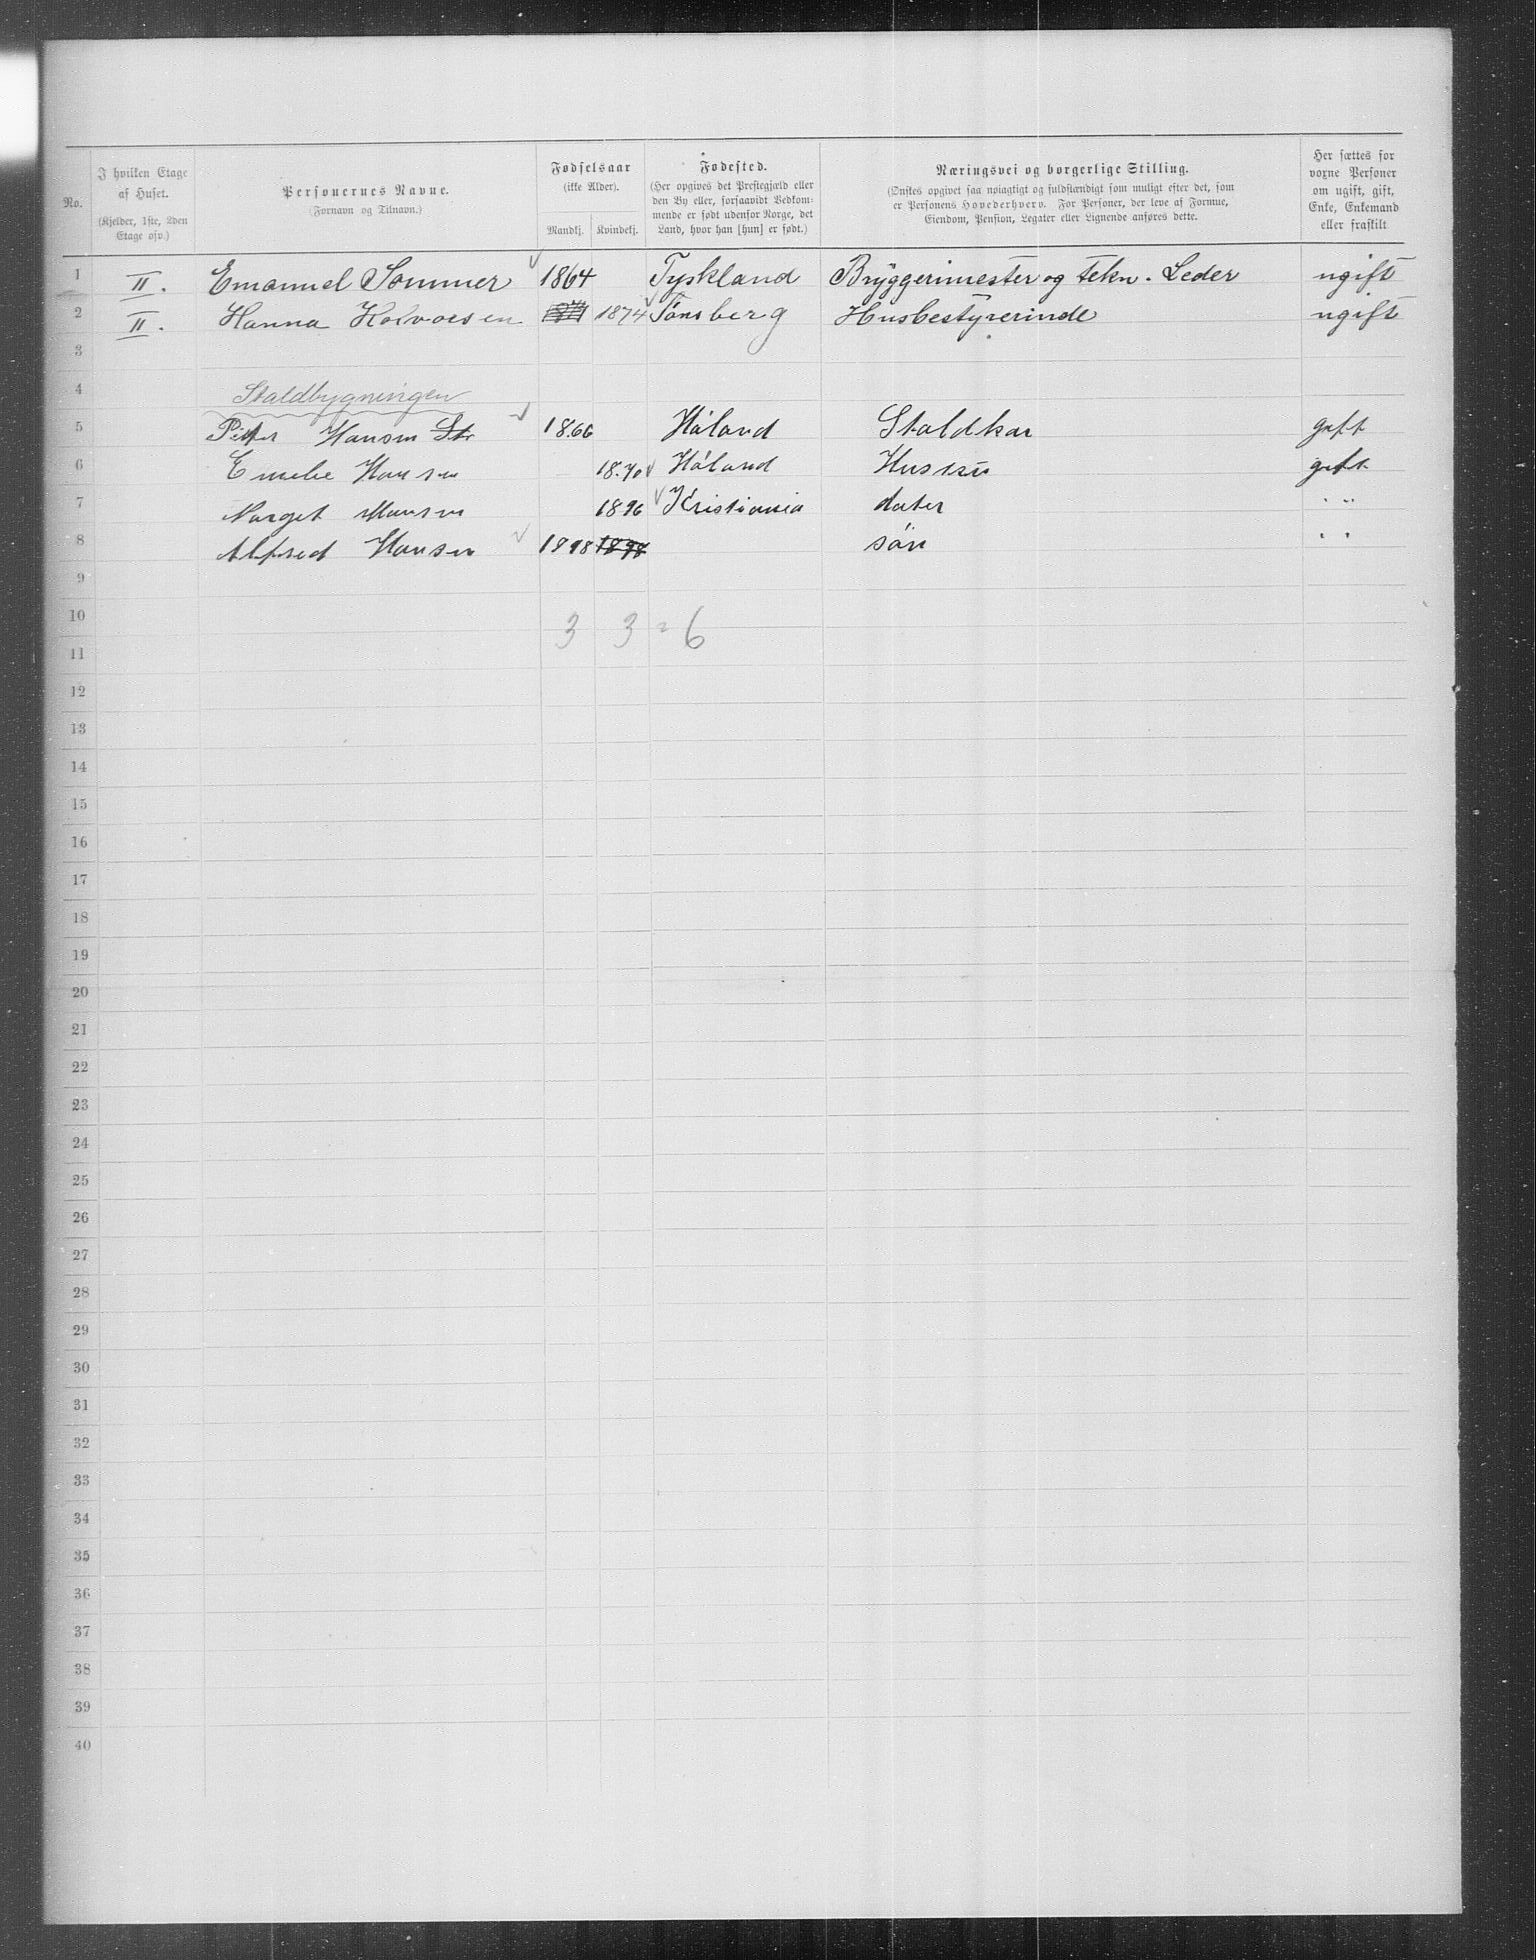 No.
I hvilken Etage
af Huset.
(Kjelder, 1ste, 2den
Etage osv.)
Personernes Navne.
(Fornavn og Tilnavn.)
Fødselsaar
(ikke Alder).
Mandkj. Kvindekj.
Fødested.
(Her opgives det Prestegjæld eller
den By eller, forsaavidt Vedkom-
mende er født udenfor Norge, det
Land, hvor han [hun] er født.)
Næringsvei og borgerlige Stilling.
(Ønskes opgivet saa nøiagtigt og fuldstændigt som muligt efter det, som
er Personens Hovederhverv. For Personer, der leve af Formue,
Eiendom, Pension, Legater eller Lignende anføres dette.
Her sættes for
voxne Personer
om ugift, gift,
Enke, Enkemand
eller fraskilt
1 II. Emanuel Sommer 1864 Tyskland Bryggerimester og tekn. Leder ugift
2 II. Hanna 1874 Tönsberg Husbestyrerinde ugift
3
4 Staldbygningen
5 Petter Hansen 1866 Höland Staldkar gift
6 Emelie Hansen 1870 Höland Hustru gift
7 Marget Hansen 1896 Kristiania dater " "
8 Alfred Hansen 1898 1898 sön " "
9
10 3 3 = 6
11
12
13
14
15
16
17
18
19
20
21
22
23
24
25
26
27
28
29
30
31
32
33
34
35
36
37
38
39
40